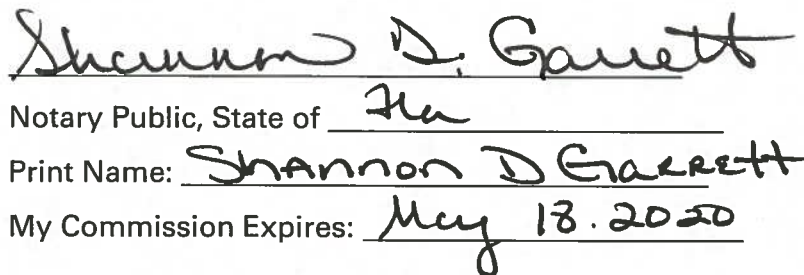 Shannon D. Garrett
Notary Public, State of Fla
Print Name: Shannon D Garrett
My Commission Expires: May 18.2020